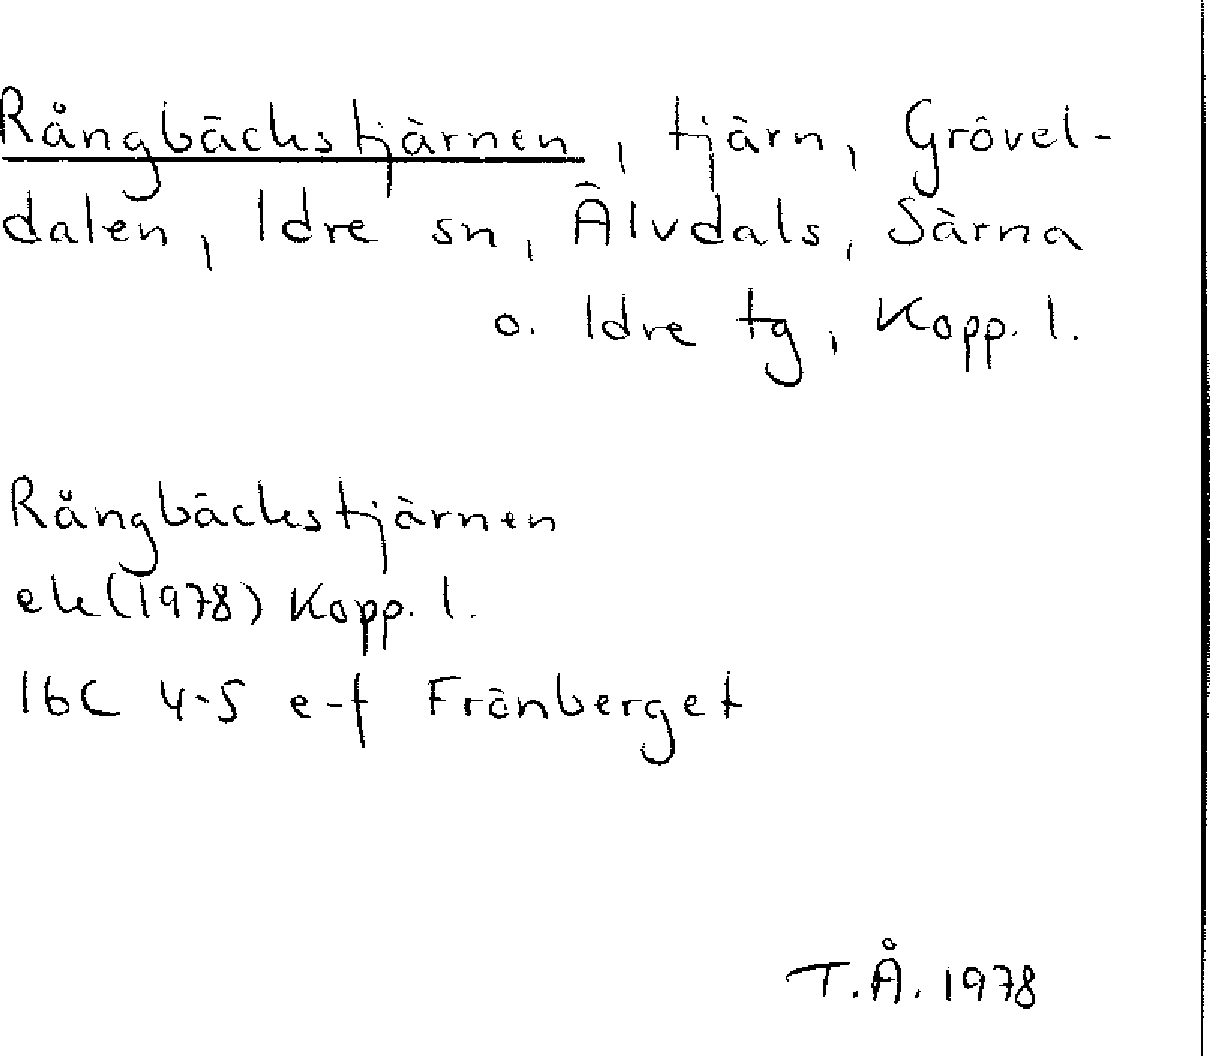 Rångbäckstjärnen, tjärn, Grövel-
dalen, Idre sn, Älvdals, Särna
o. Idre tg, Kopp. l.
Rångbäckstjärnen
ek (1978) Kopp. l.
16C 4-5 e-f Frönberget
T.Å. 1978